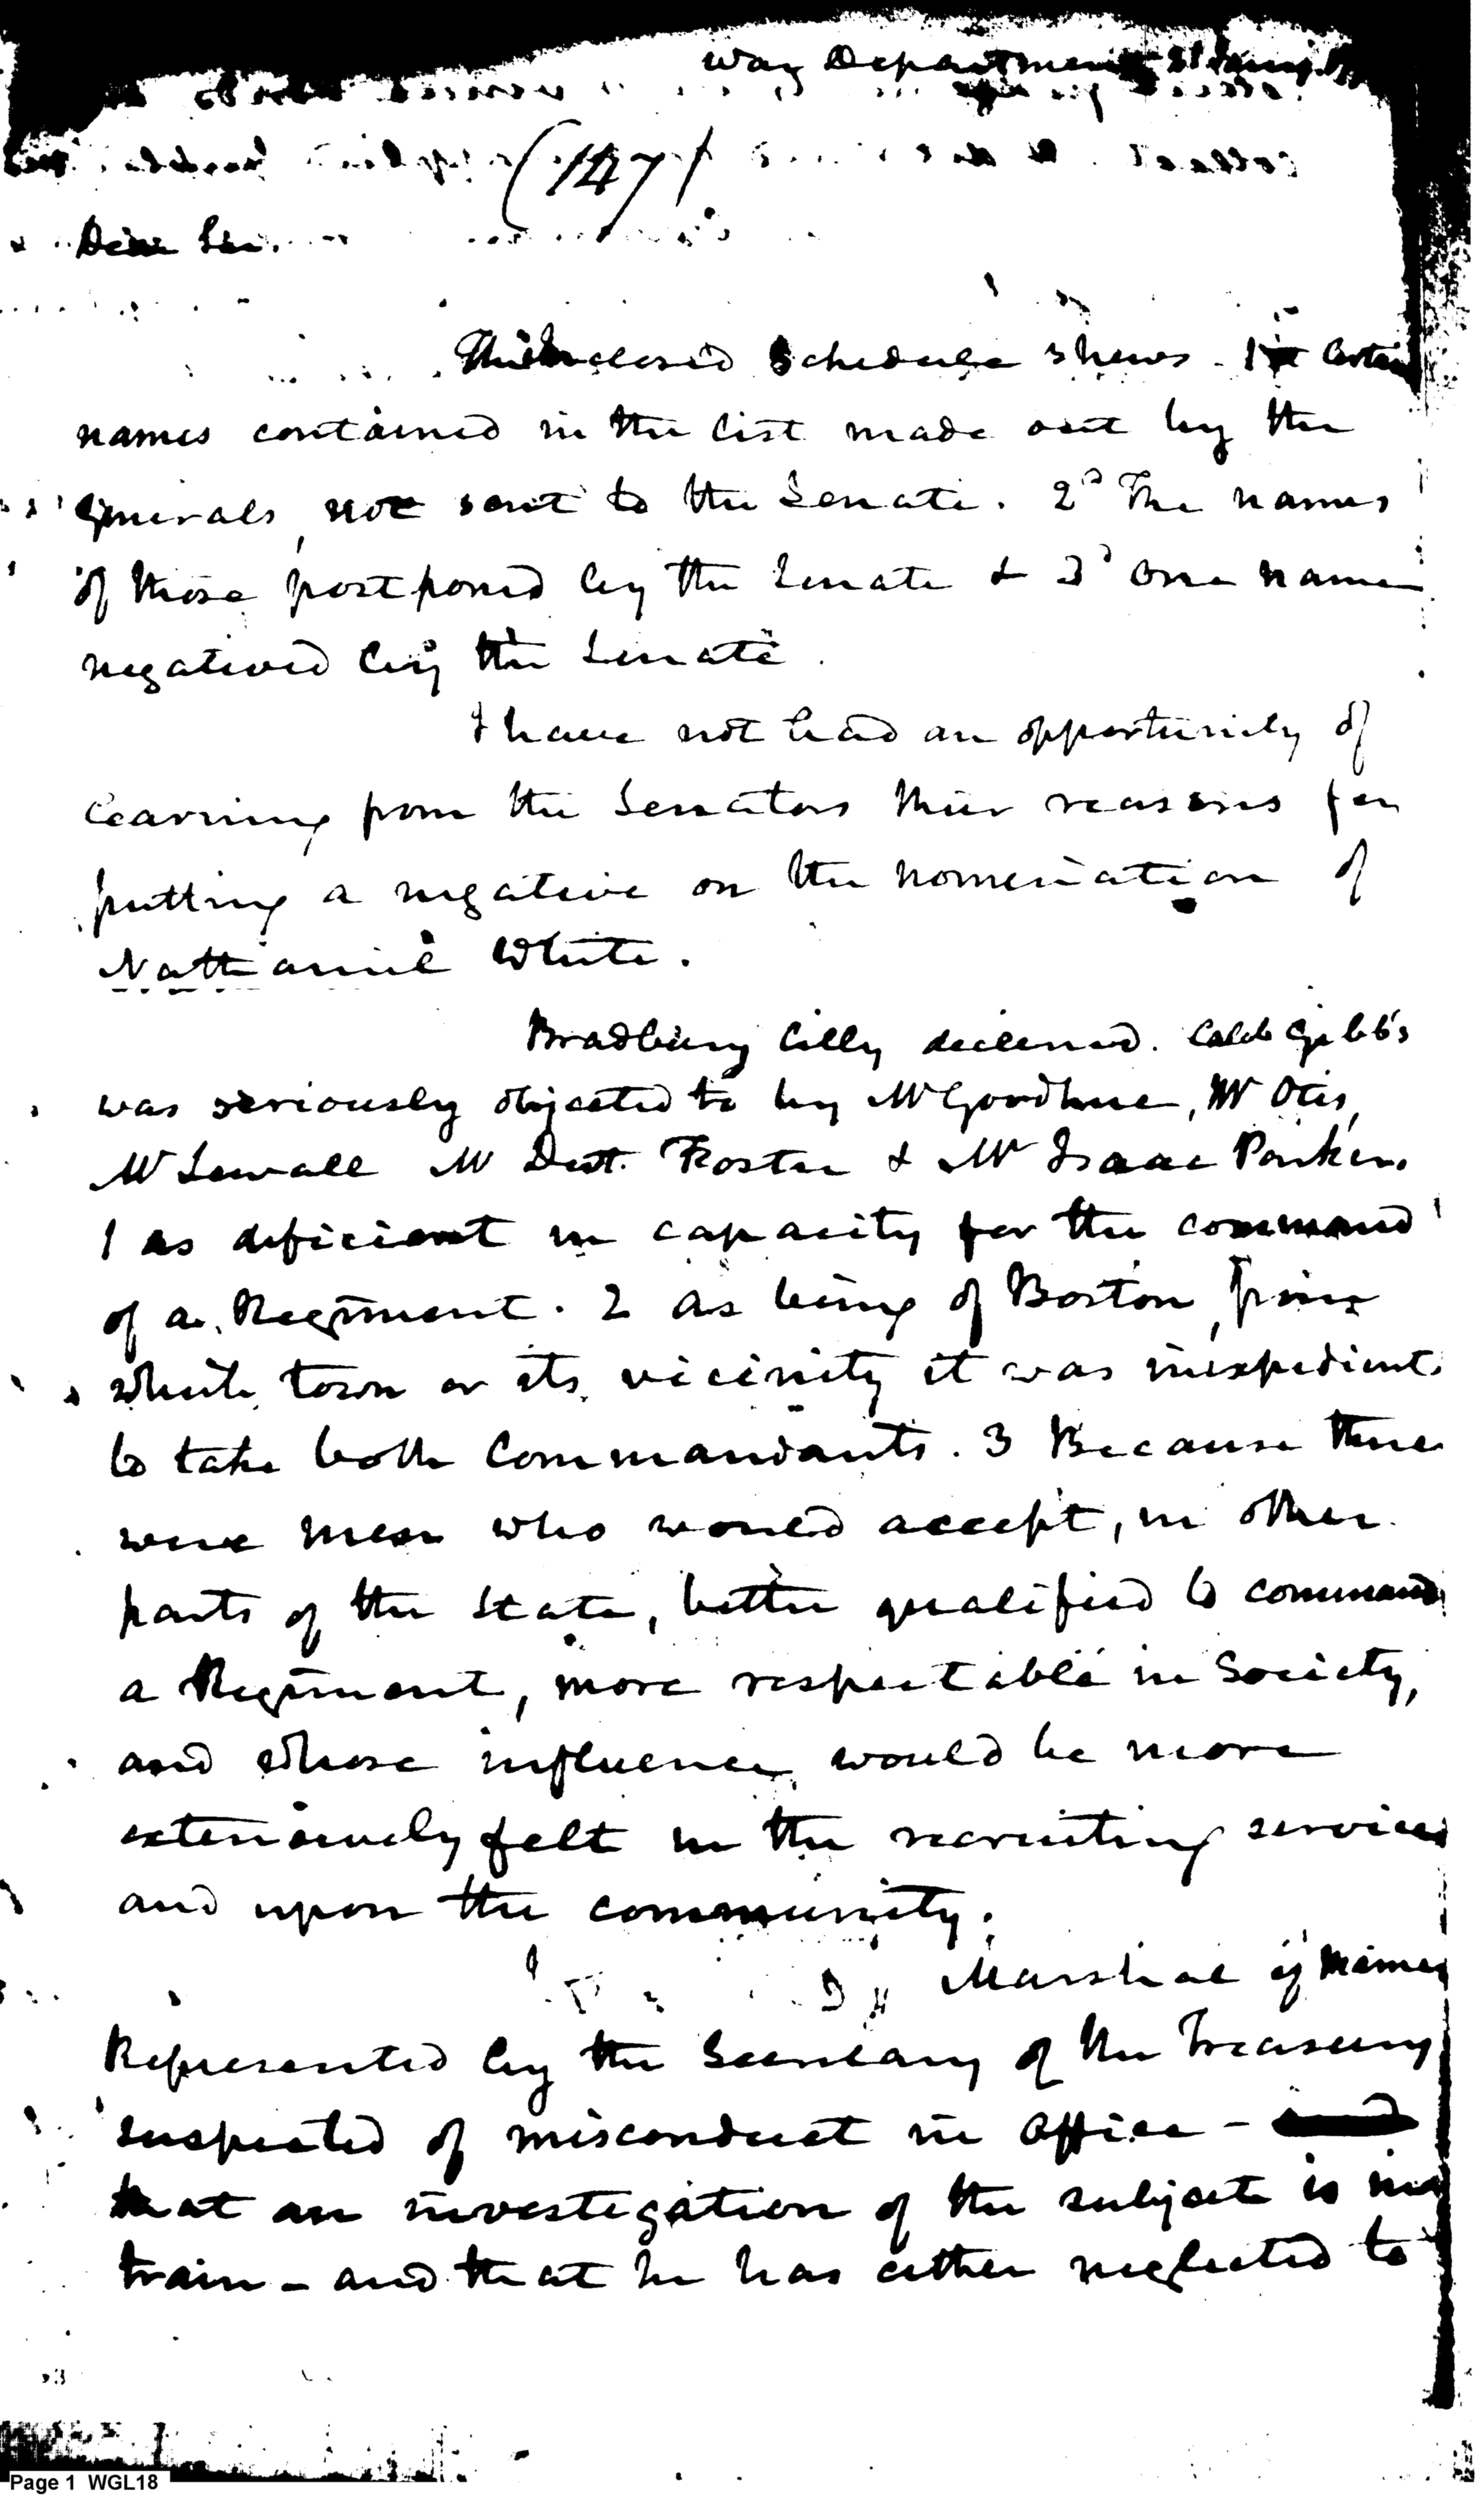 War Department
(147)
Dear Sir.
The inclosed Schedule shews 1st Certain
names contained in the list made out by the
generals, not sent to the Senate. 2d The names
of those postponed by the Senate & 3d One name
negatived by the Senate.
I have not had an opportunity of
learning from the Senators their reasons for
putting a negative on the nomination of
Nathaniel White.
Bradbury Cilly declined. Caleb Gibbs
was seriously objected to by Mr Goodhue, Mr Otis,
Mr Sewall Mr Dwt. Foster & Mr Isaac Parker.
1 as deficient in capacity for the command
of a Regiment. 2 as being of Boston, from
which town or its vicinity it was inexpedient
to take both Commandants. 3 Because there
were men who would accept, in other
parts of the State, better qualified to command
a Regiment, more respectable in Society,
and whose influence would be more
extensively felt in the recruiting service
and upon the community.
Marshal of Maine
Represented by the Secretary of the Treasury
suspected of misconduct in office -
that an investigation of the subject is in
train - and that he has either neglected to
Page 1 WGL18